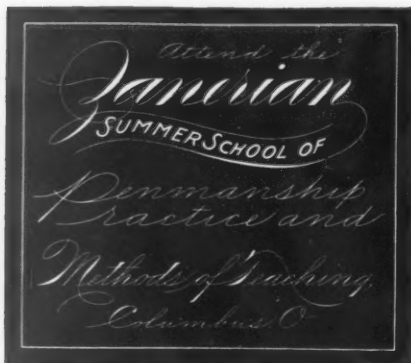 Attend the
Zanerian
SUMMER SCHOOL OF
Penmanship
Practice and
Methods of Teaching,
Columbus, O